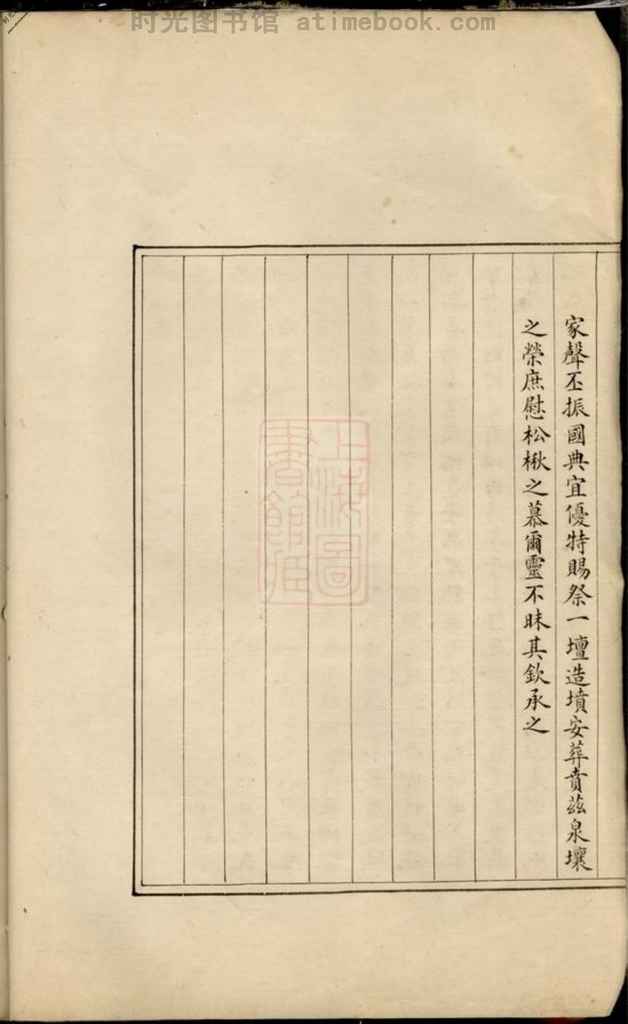 时光图书馆 atimebook.com
家聲丕振國典宜優特賜祭一壇造墳安葬賁茲泉壤
之榮庶慰松楸之慕爾靈不昧其欽承之
上海圖
書館藏